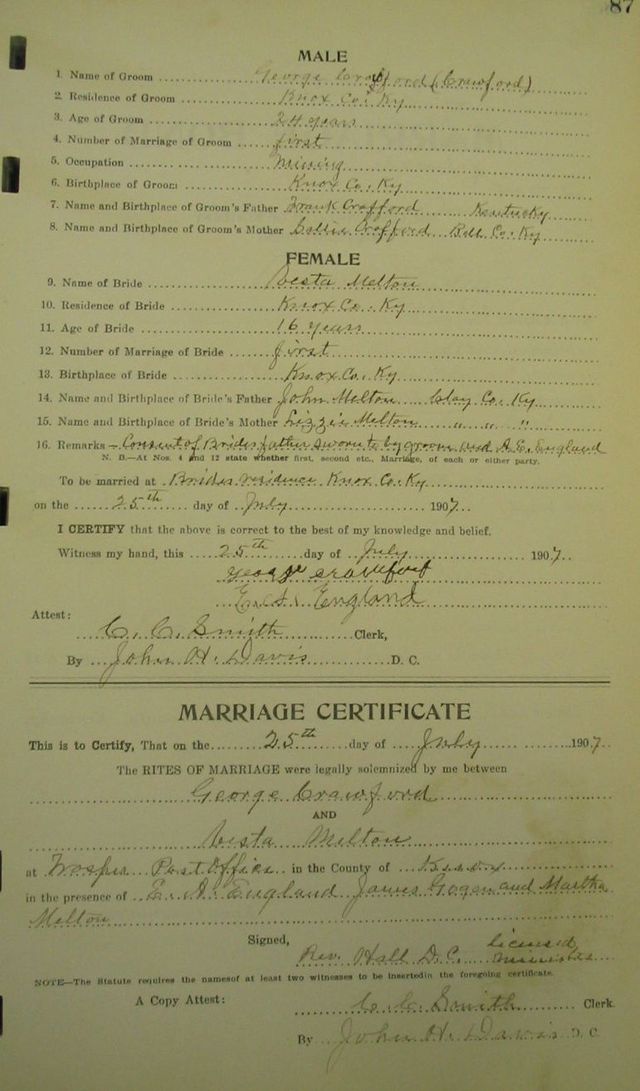 87
MALE
1. Name of Groom George Crafford (Crawford)
2. Residence of Groom Knox Co. Ky
3. Age of Groom 24 years
4. Number of Marriage of Groom first
5. Occupation Mining
6. Birthplace of Groom Knox Co. Ky
7. Name and Birthplace of Groom's Father Frank Crafford Kentucky
8. Name and Birthplace of Groom's Mother Crafford Bell Co. Ky
FEMALE
9. Name of Bride Vesta Melton
10. Residence of Bride Knox Co. Ky
11. Age of Bride 16 years
12. Number of Marriage of Bride first
13. Birthplace of Bride Knox Co. Ky
14. Name and Birthplace of Bride's Father John Melton Clay Co. Ky
15. Name and Birthplace of Bride's Mother Lizzie Melton " " "
16. Remarks Consent of Brides father sworn to by groom and England
N. B.—At Nos. 4 and 12 state whether first, second etc., Marriage, of each or either party.
To be married at Brides residence Knox Co. Ky
on the 25th day of July 1907
I CERTIFY that the above is correct to the best of my knowledge and belief.
Witness my hand, this 25th day of July 1907
George Crawford
England
Attest:
C. C. Smith Clerk,
By John H. Davis D. C.
MARRIAGE CERTIFICATE
This is to Certify, That on the 25th day of July 1907
The RITES OF MARRIAGE were legally solemnized by me between
George Crawford
AND
Vesta Melton
at Trosper Post Office in the County of Knox
in the presence of England and Martha
Melton
Signed, Rev. Hall D. C. licensed
minister
NOTE—The Statute requires the namesof at least two witnesses to be insertedin the foregoing certificate.
A Copy Attest: C. C. Smith Clerk.
By John H. Davis D. C.